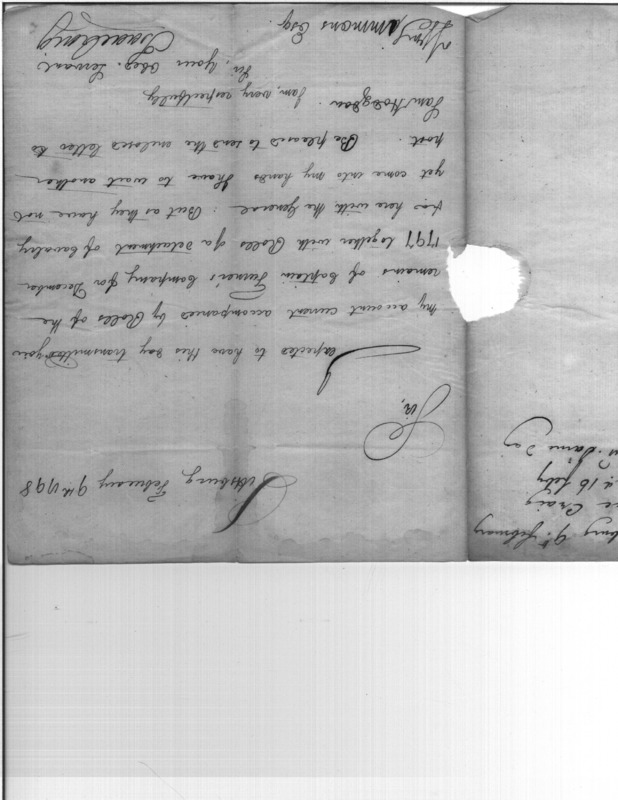 Pittsburg, February 9th 1798
Sir,
I expected to have this day transmitted you
my account current accompanied by Rolls of the
remains of Captain Turner's Company for December
1797 together with Rolls of a detachment of Cavalry
here with the General: But as they have not
yet come into my hands I have to wait another
post. Be pleased to send the enclosed letter to
Sam. Hodgdon.
I am, very respectfully
Sir, your Obed. Servant
Isaac Craig
Simmons Esq
9th February
Craig
16 Feby
same day